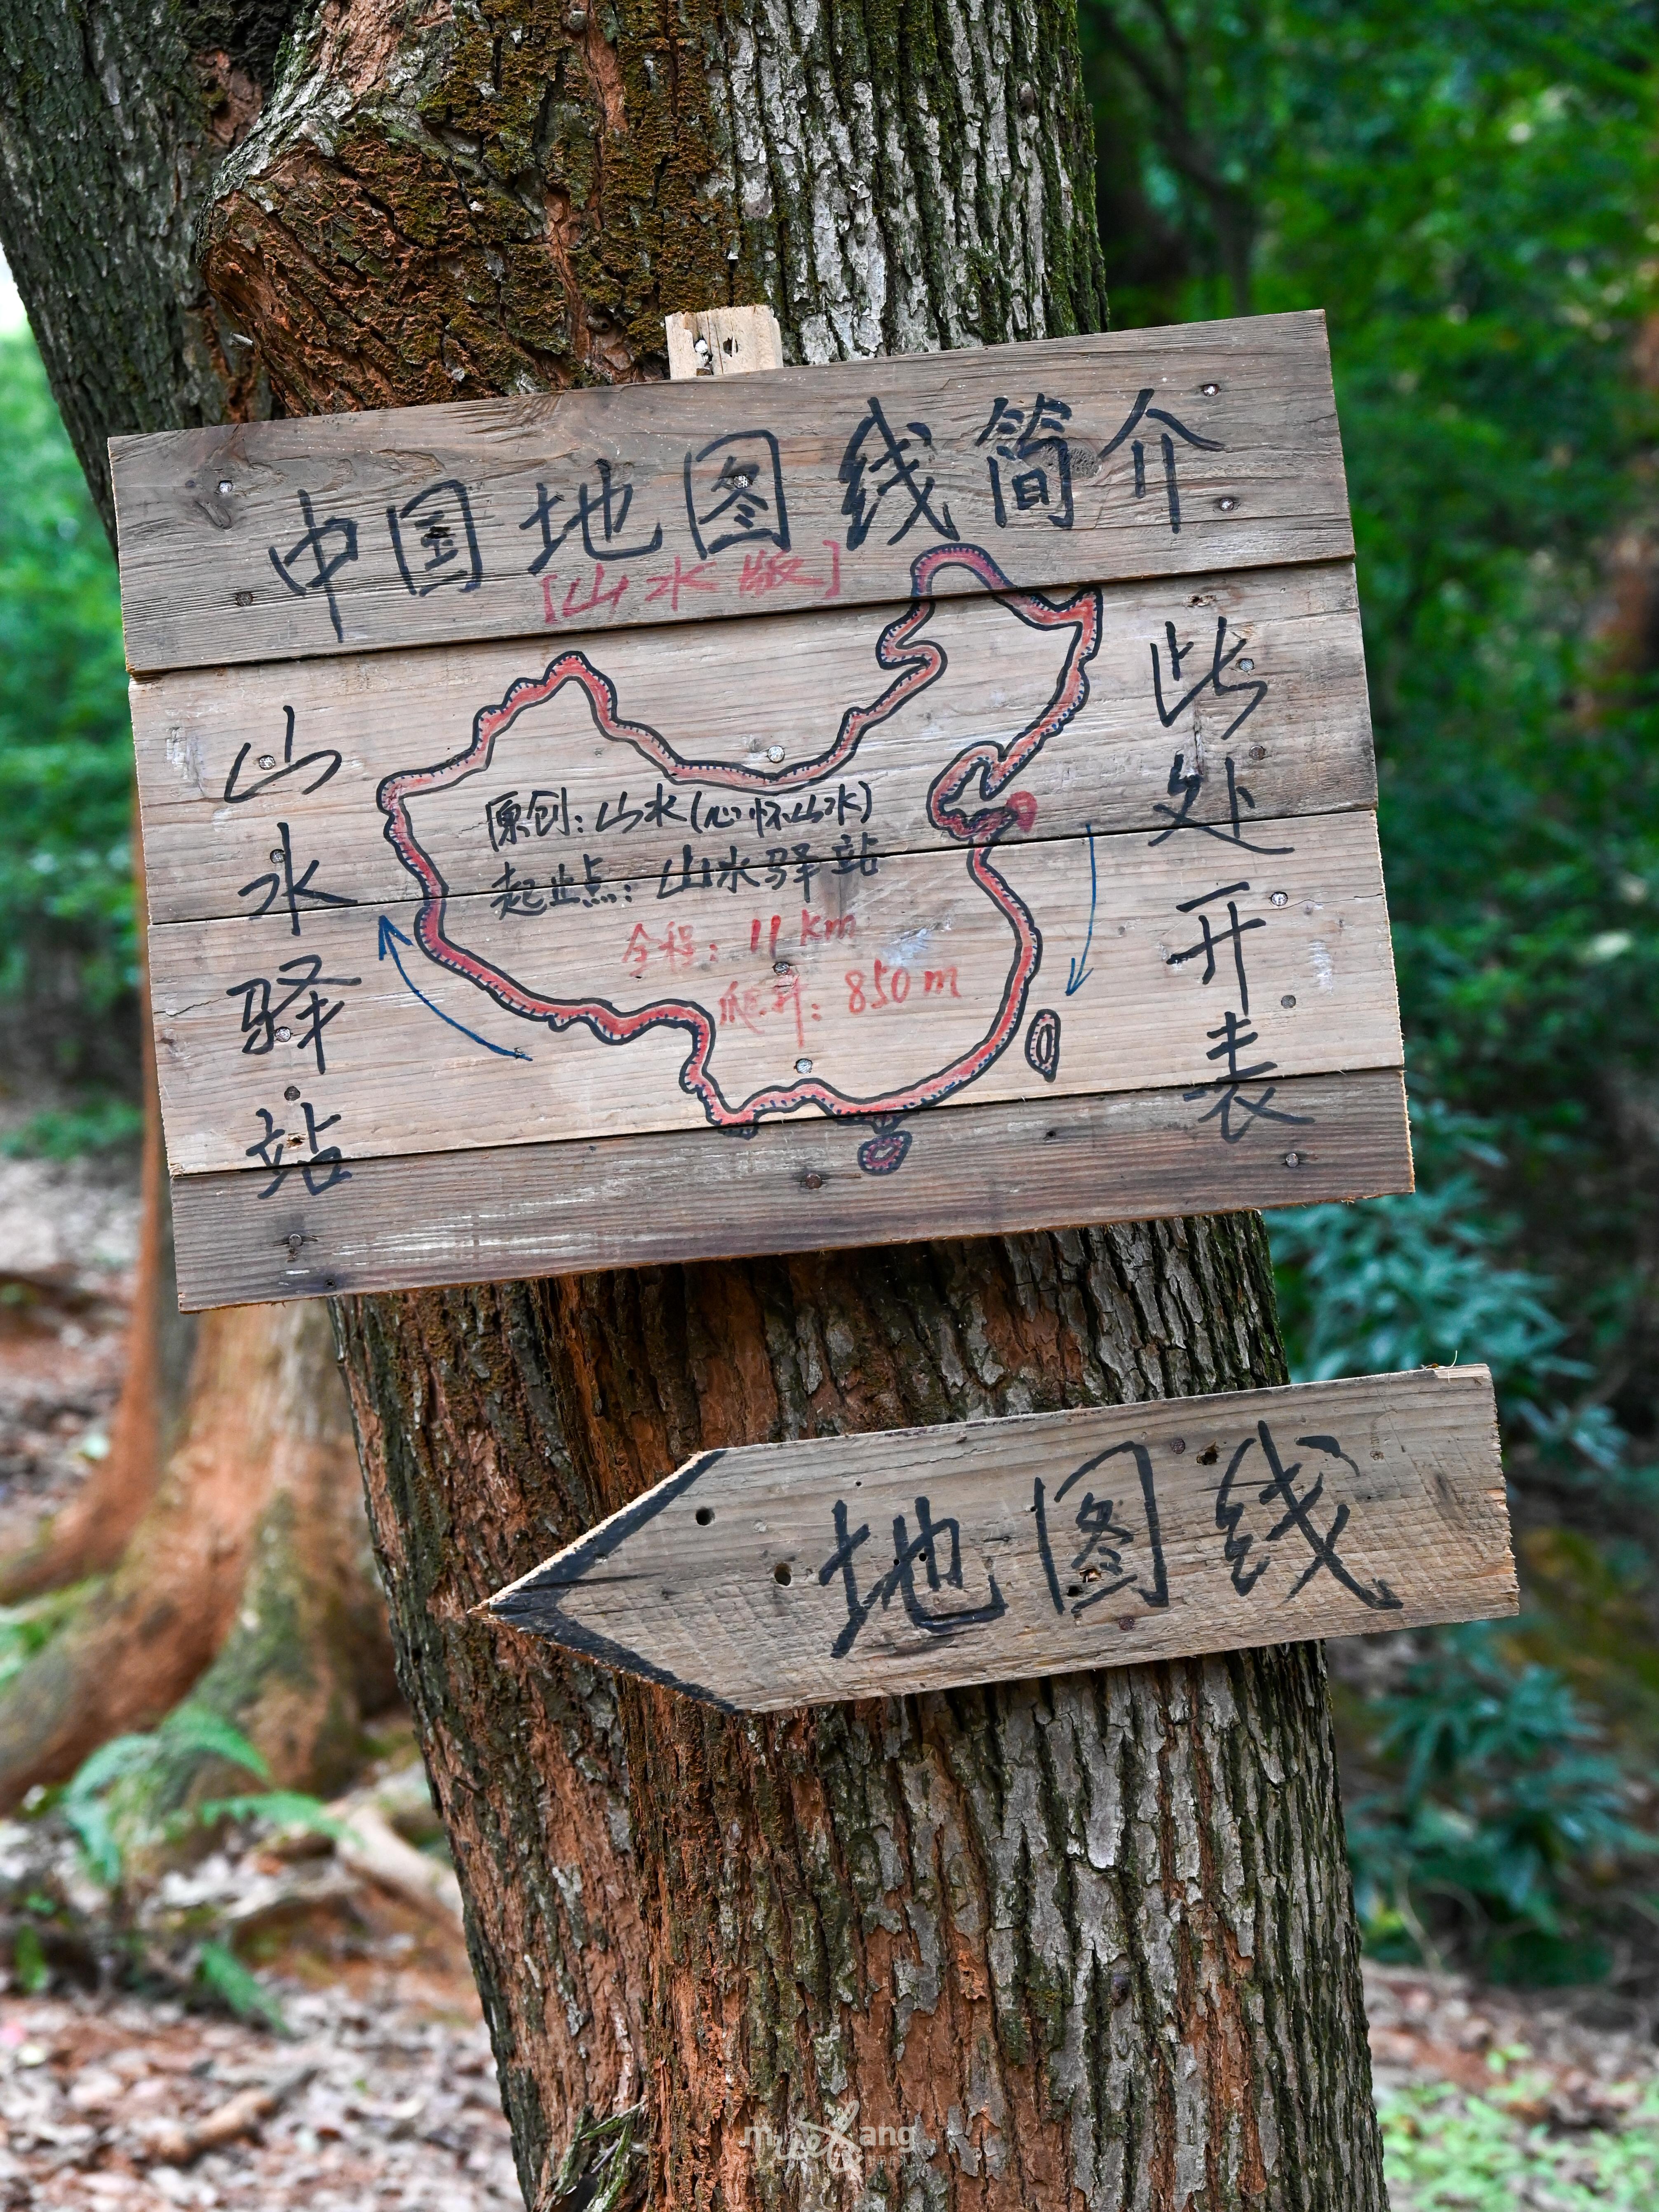 中国地图线简介
[山水版]
山水驿站
原创：山水(心怀山水)
起止点：山水驿站
全程：11km
爬升：850m
此处开表
地图线